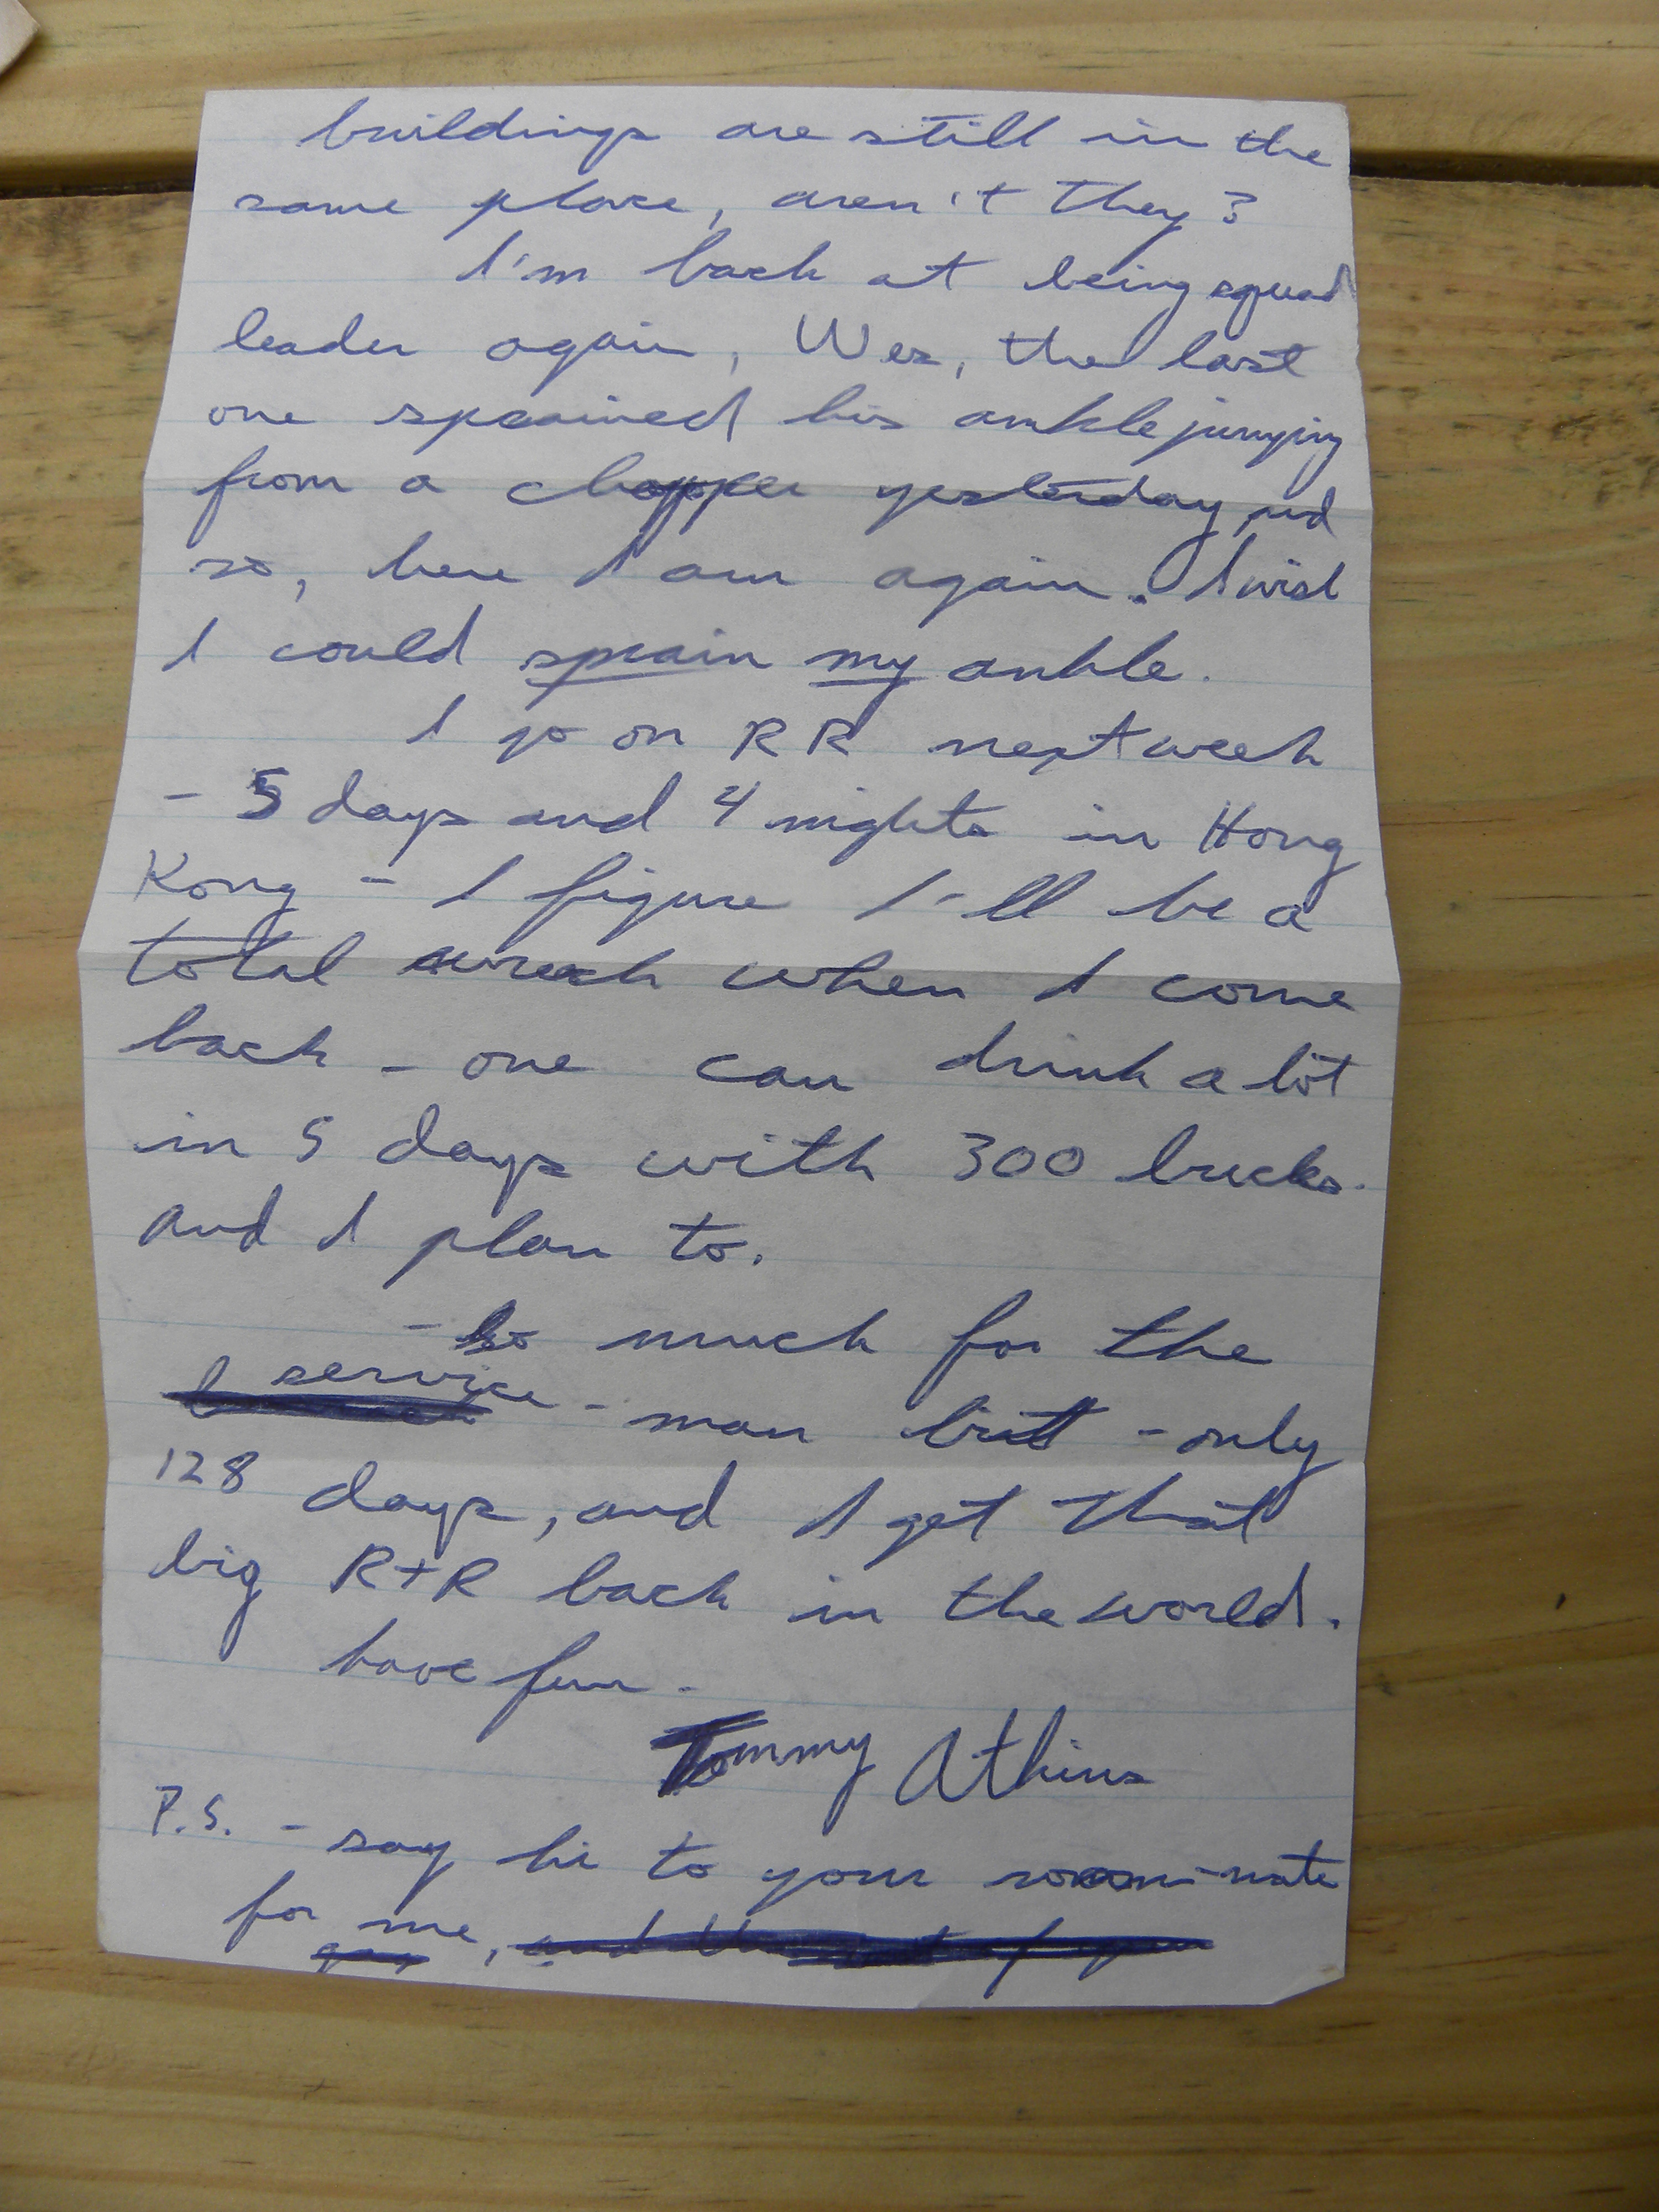 buildings are still in the
same place, aren't they?
I'm back at being squad
leader again, Wes, the last
one sprained his ankle jumping
from a chopper yesterday, and
so, here I am again. I wish
I could sprain my ankle.
I go on RR next week
- 5 days and 4 nights in Hong
Kong - I figure I'll be a
total wreck when I come
back - one can drink a lot
in 5 days with 300 bucks.
and I plan to.
- so much for the
service - man bit - only
128 days, and I get that
big R+R back in the world.
have fun.
Tommy Atkins
P.S. - say hi to your room-mate
for me,